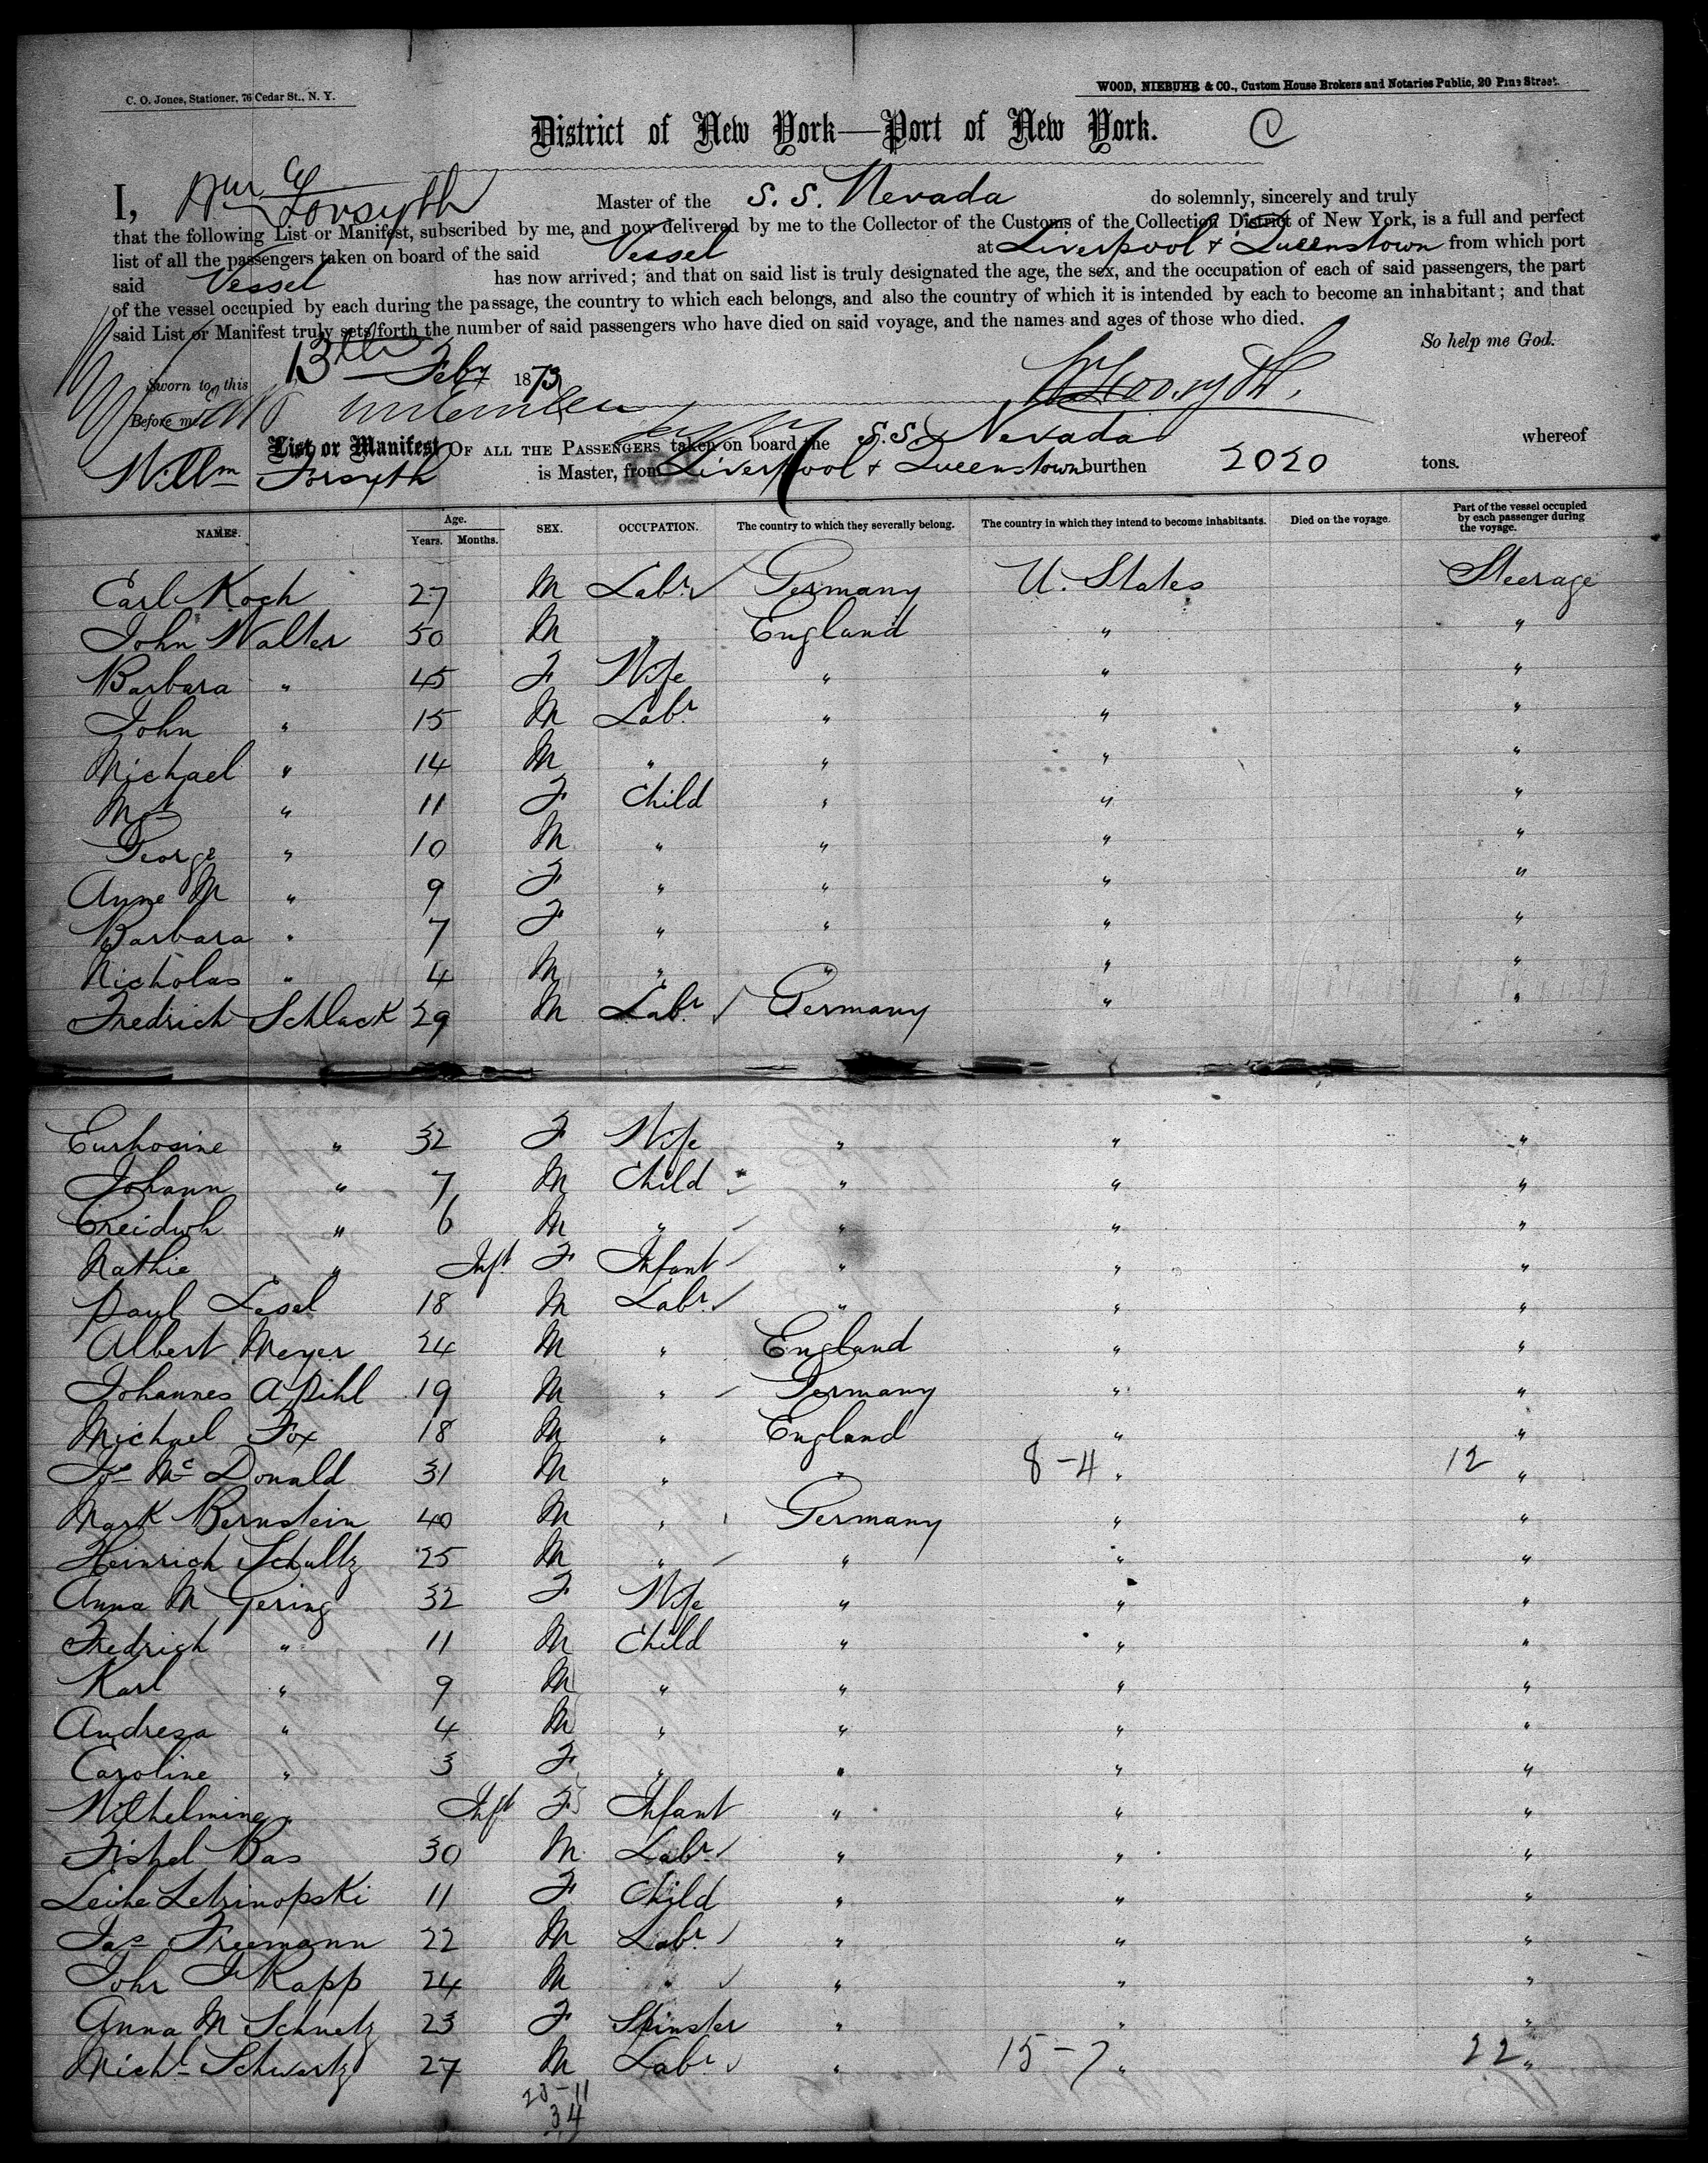 C. O. Jones, Stationer, 76 Cedar St., N. Y.
WOOD, NIEBUHR & CO., Custom House Brokers and Notaries Public, 20 Pine Street.
District of New York—Port of New York.
I, Wm Forsyth Master of the S. S. Nevada do solemnly, sincerely and truly
that the following List or Manifest, subscribed by me, and now delivered by me to the Collector of the Customs of the Collection District of New York, is a full and perfect
list of all the passengers taken on board of the said Vessel at Liverpool & Queenstown from which port
said Vessel has now arrived; and that on said list is truly designated the age, the sex, and the occupation of each of said passengers, the part
of the vessel occupied by each during the passage, the country to which each belongs, and also the country of which it is intended by each to become an inhabitant; and that
said List or Manifest truly sets forth the number of said passengers who have died on said voyage, and the names and ages of those who died.
So help me God.
Sworn to this 13th Feby 1873
W Forsyth.
Before me
List or Manifest OF ALL THE PASSENGERS taken on board the S.S. Nevada whereof
Willm Forsyth is Master, from Liverpool & Queenstown burthen 2020 tons.
NAMES. Age. Years. Months. SEX. OCCUPATION. The country to which they severally belong. The country in which they intend to become inhabitants. Died on the voyage. Part of the vessel occupied by each passenger during the voyage.
Earl Koch 27 M Labr Germany U. States Steerage
John Walter 50 M " England " "
Barbara " 45 F Wife " " "
John " 15 M Labr " " "
Michael " 14 M " " " "
Mgt " 11 F Child " " "
George " 10 M " " " "
Anne M " 9 F " " " "
Barbara " 7 F " " " "
Nicholas " 4 M " " " "
Fredrich Schlack 29 M Labr Germany " "
Eurhosine " 32 F Wife " " "
Johann " 7 M Child " " "
Creidwh " 6 M " " " "
Nathie " Inft F Infant " " "
Paul Lesel 18 M Labr " " "
Albert Meyer 24 M " England " "
Johannes A Pihl 19 M " Germany " "
Michael Fox 18 M " England " "
Jos McDonald 31 M " " 8-4 " 12 "
Mark Bernstein 40 M " Germany " "
Heinrich Schultz 25 M " " " "
Anna M Gering 32 F Wife " " "
Fredrich " 11 M Child " " "
Karl " 9 M " " " "
Andresa " 4 M " " " "
Caroline " 3 F " " " "
Wilhelmine " Inft F Infant " " "
Fishel Bas 30 M Labr " " "
Leihe Letzinopski 11 F Child " " "
Jas Freemann 22 M Labr " " "
Johr J Rapp 24 M " " " "
Anna M Schnetz 23 F Spinster " " "
Michl Schwartz 27 M Labr " 15-7 " 22 "
23-11
34